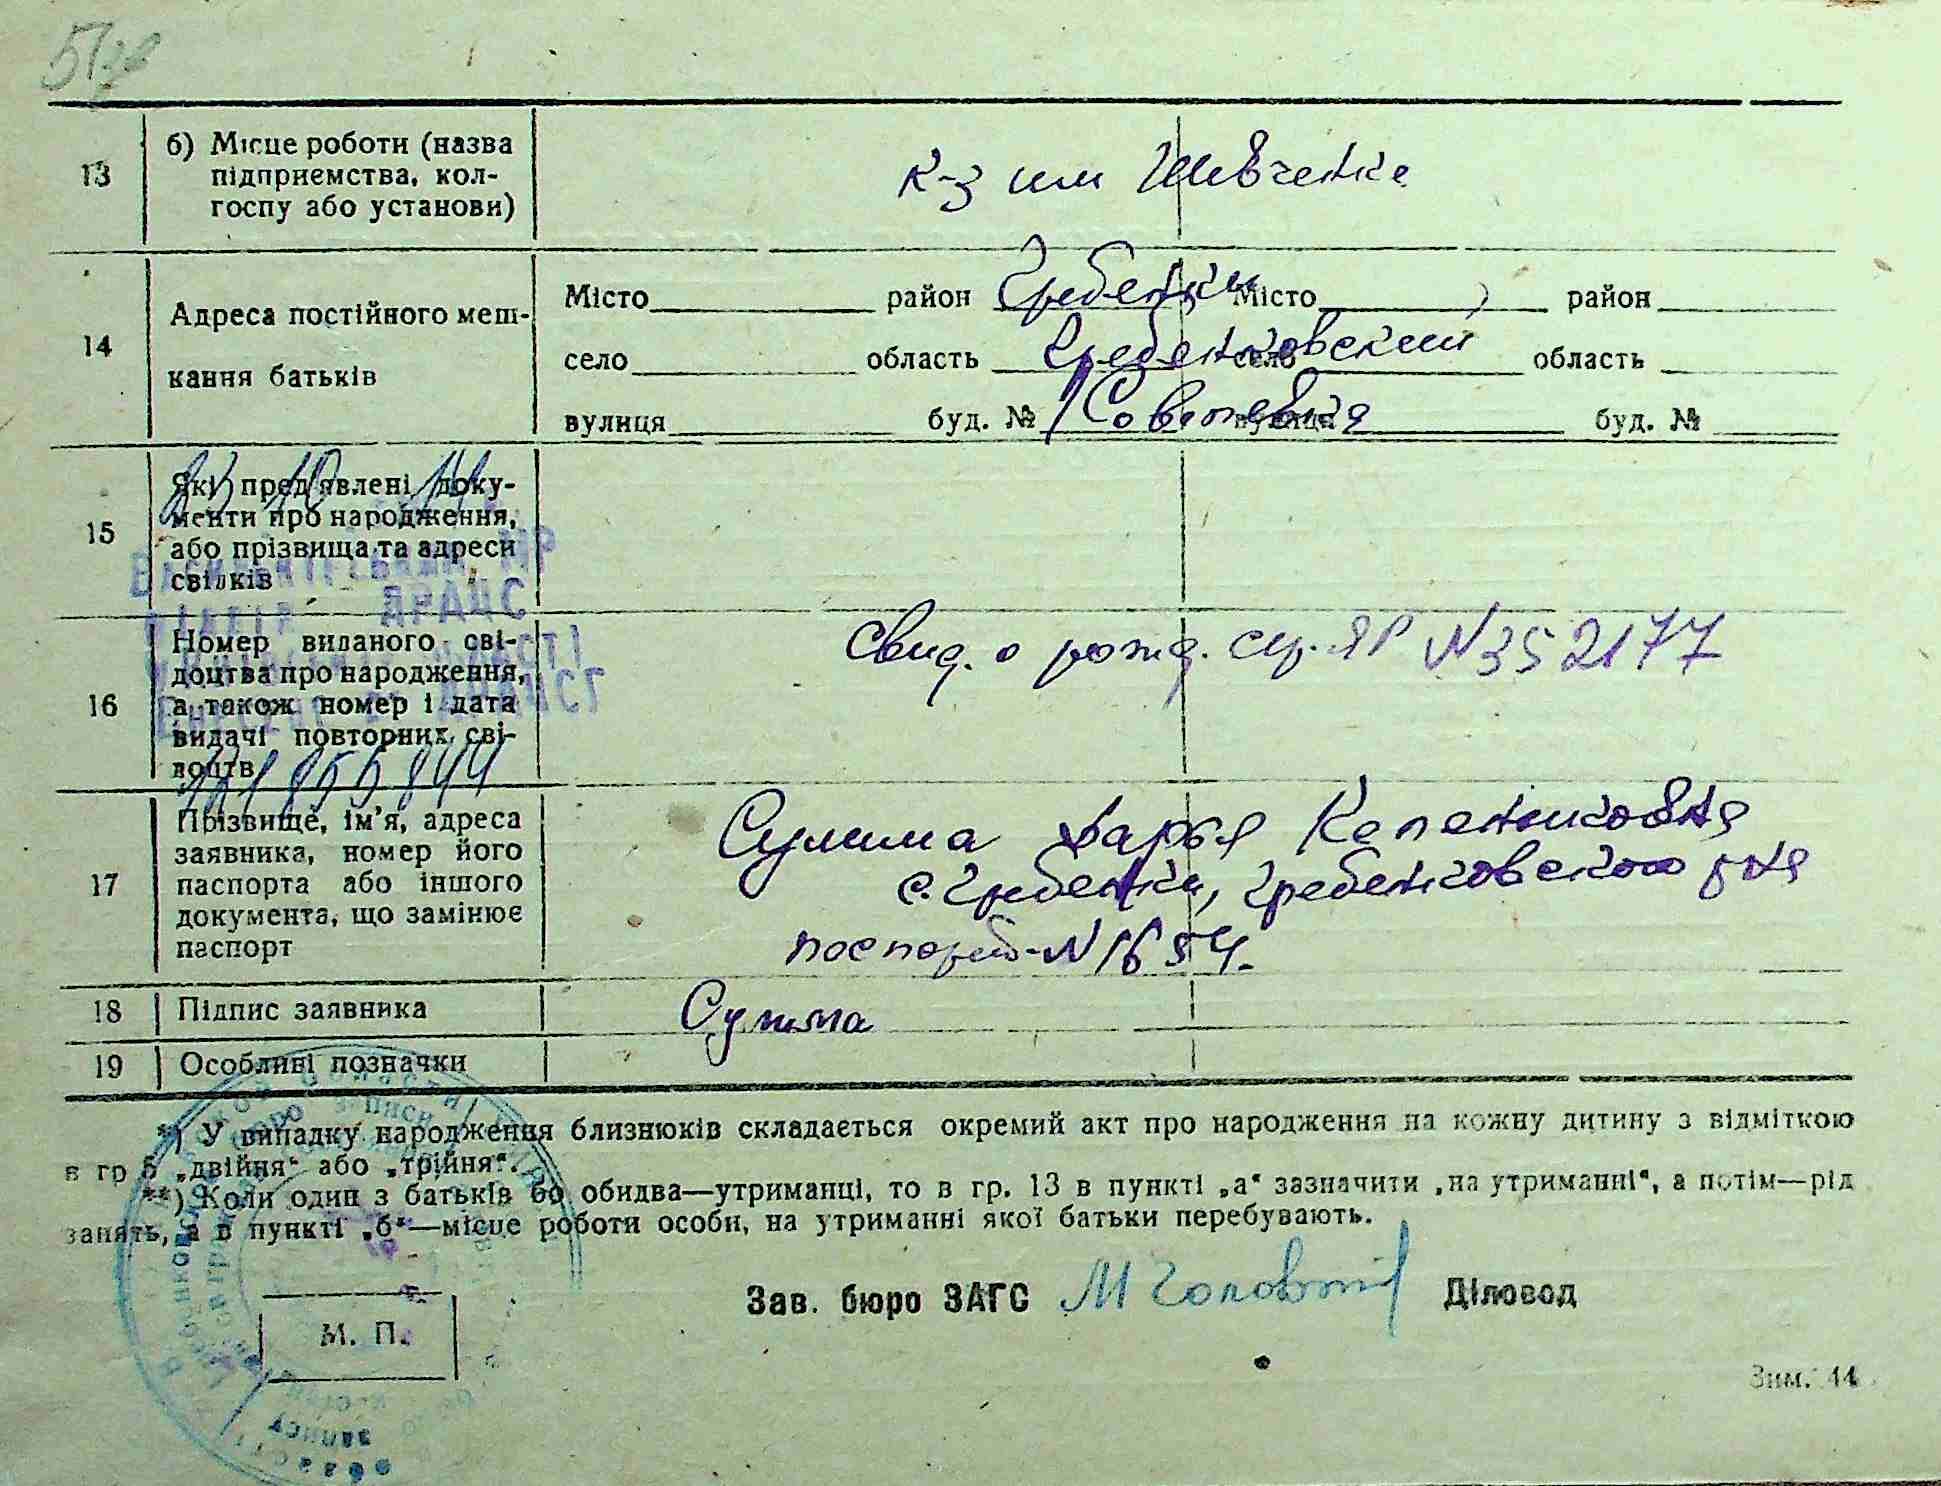 13
б) Місце роботи (назва
підприємства, кол-
госпу або установи)
к-з им Шевченка
14
Адреса постійного меш-
кання батьків
Місто район Гребенки Місто район
село область Гребенковский село область
вулиця буд. № вулиця буд. №
15
Які пред'явлені доку-
менти про народження,
або прізвища та адреси
свідків
16
Номер виданого сві-
доцтва про народження,
а також номер і дата
видачі повторних сві-
доцтв
Свид. о рожд. сер. ЯР № 352177
17
Прізвище, ім'я, адреса
заявника, номер його
паспорта або іншого
документа, що замінює
паспорт
Сулима Дарья
с. Гребенки, Гребенковского р-на
паспорт № 1654.
18 Підпис заявника
19 Особливі позначки
*) У випадку народження близнюків складається окремий акт про народження на кожну дитину з відміткою
в гр 5 „двійня“ або „трійня“.
**) Коли один з батьків бо обидва—утриманці, то в гр. 13 в пункті „а“ зазначити „на утриманні“, а потім—рід
занять, а в пункті „б“—місце роботи особи, на утриманні якої батьки перебувають.
Зав. бюро ЗАГС Діловод
М. П.
Зим. 44